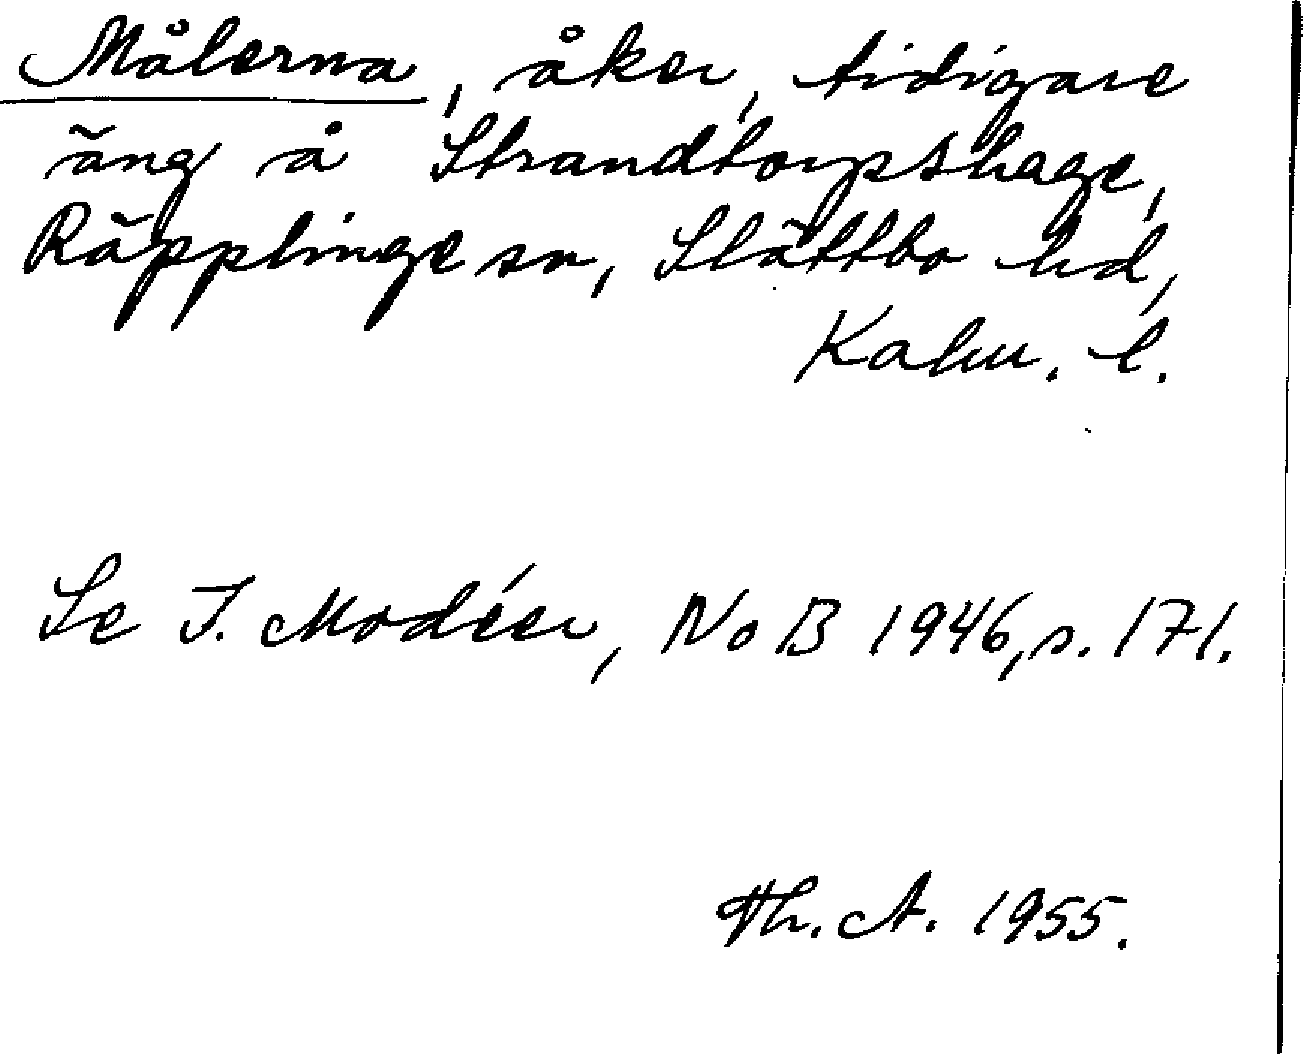 Målerna, åker, tidigare
äng å Strandtorpshage,
Räpplinge sn, Slättbo hd,
Kalm. l.
Se I. Modéer, NoB 1946, s. 171.
Th. A. 1955.